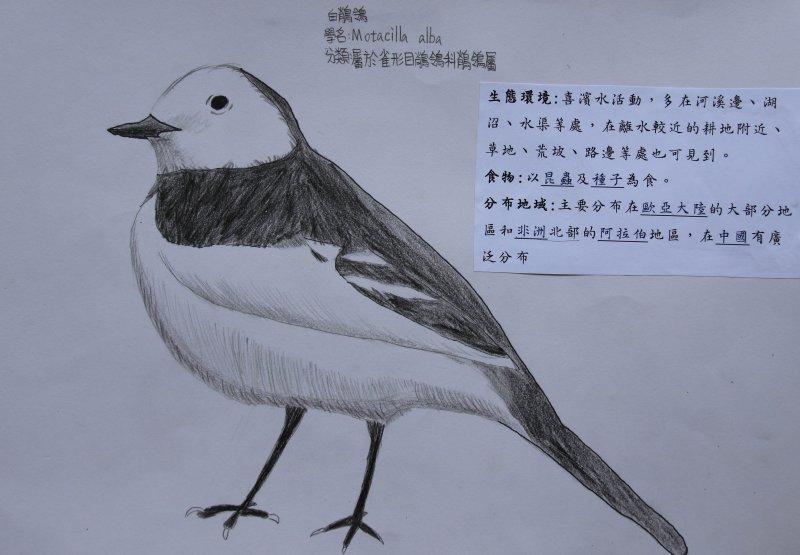 白鶺鴒
學名:Motacilla alba
分類:屬於雀形目鶺鴒科鶺鴒屬
生態環境:喜濱水活動，多在河溪邊、湖
沼、水渠等處，在離水較近的耕地附近、
草地、荒坡、路邊等處也可見到。
食物:以昆蟲及種子為食。
分布地域:主要分布在歐亞大陸的大部分地
區和非洲北部的阿拉伯地區，在中國有廣
泛分布